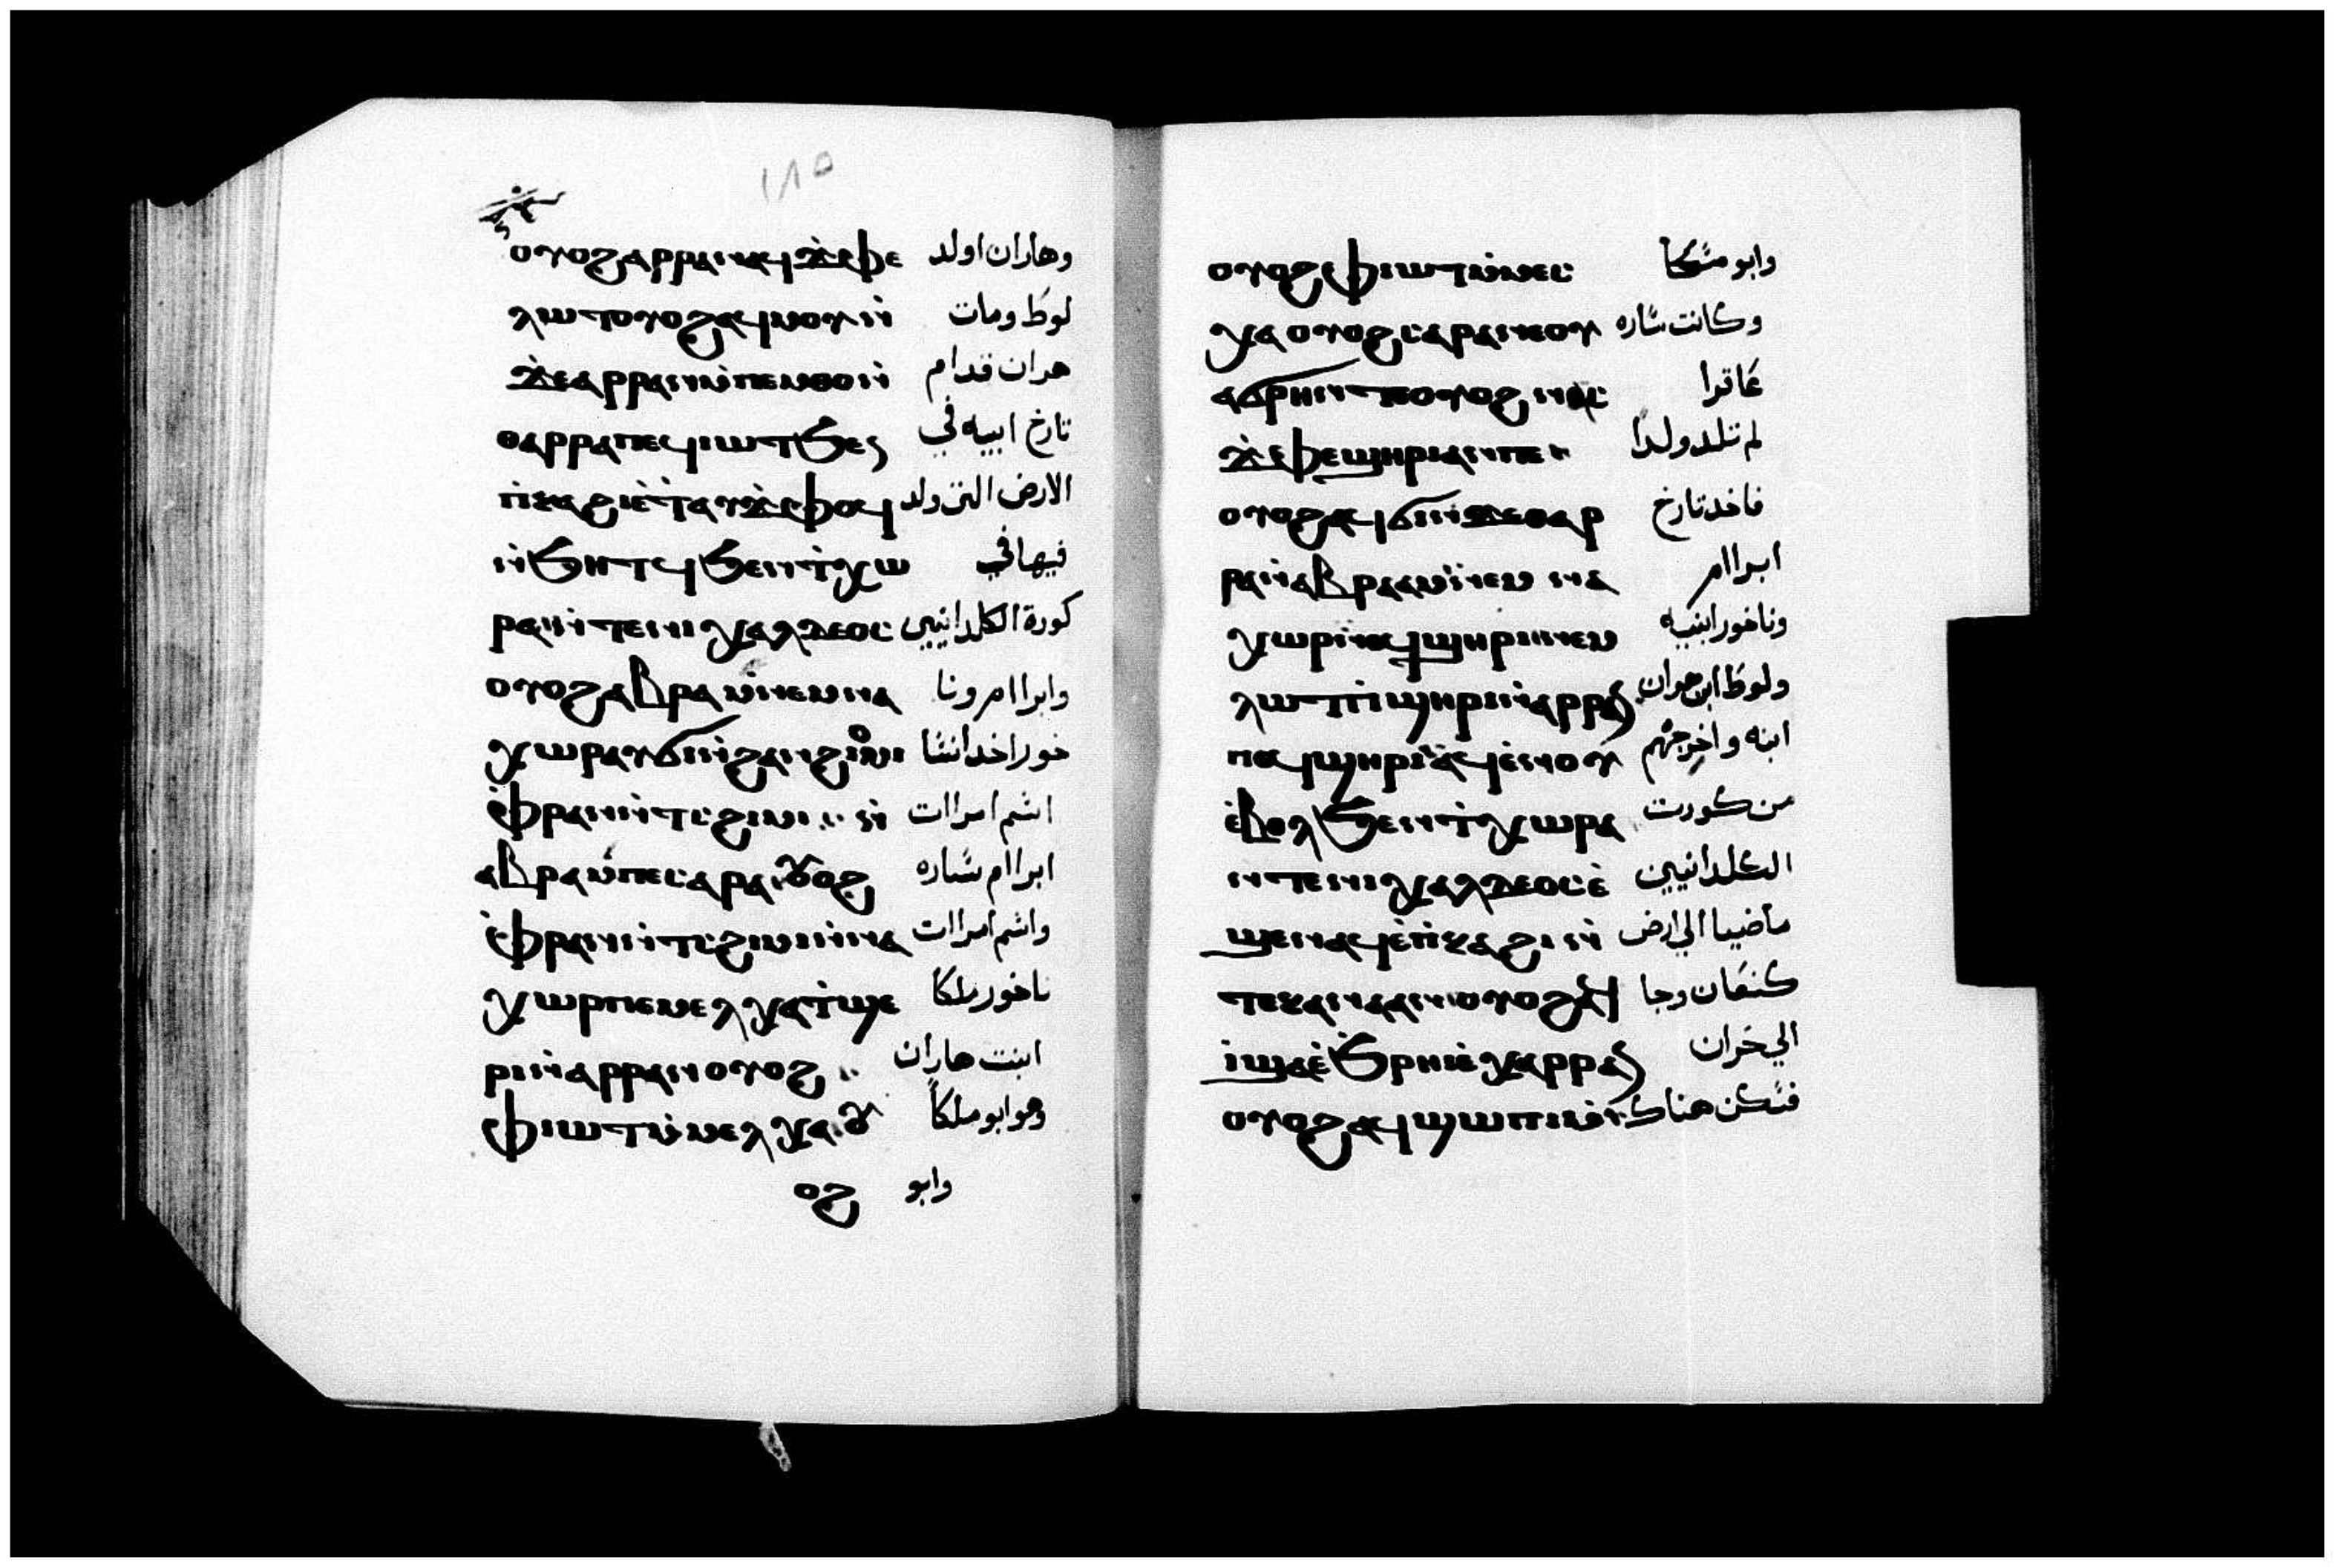 ١٨٥
ⲟⲩⲟϩ ⲁⲣⲣⲁⲛ ⲁϥϫⲫⲉ وهاران اولد
ⲗⲱⲧ ⲟⲩⲟϩ ⲁϥⲙⲟⲩ ⲛ̀ لوط ومات
ϫⲉ ⲁⲣⲣⲁⲛ ⲙ̀ⲡⲉⲙⲑⲟ ⲛ̀ هران قدام
ⲑⲁⲣⲣⲁ ⲡⲉϥⲓⲱⲧ ϧⲉⲛ تارخ ابيه في
ⲡ̀ⲕⲁϩⲓ ⲉ̀ⲧⲁⲩϫⲫⲟϥ الارض التى ولد
ⲛ̀ϧⲏⲧϥ ϧⲉⲛ ϯⲭⲱ فيها في
ⲣⲁ ⲛ̀ⲧⲉ ⲛⲓⲭⲁⲗⲇⲉⲟⲥ كورة الكلدانيين
ⲟⲩⲟϩ ⲁⲃⲣⲁⲙ ⲛⲉⲙ ⲛⲁ وابراام ونا
ⲭⲱⲣ ⲁⲩϭⲓ ⲛ̀ϩⲁⲛϩⲓⲟⲙⲓ خور اخدا نسا
ⲫ̀ⲣⲁⲛ ⲛ̀ⲧⲥϩⲓⲙⲓ ⲛ̀ اسم امراات
ⲁⲃⲣⲁⲙ ⲡⲉ ⲥⲁⲣⲁ ⲟⲩⲟϩ ابراام ساره
ⲫ̀ⲣⲁⲛ ⲛ̀ⲧⲥϩⲓⲙⲓ ⲛ̀ⲛⲁ واسم امراات
ⲭⲱⲣ ⲡⲉ ⲙⲉⲗⲭⲁ ⲧ̀ϣⲉ ناخور ملكا
ⲣⲓ ⲛ̀ⲁⲣⲣⲁⲛ ⲟⲩⲟϩ ابنت هاران
ⲫⲓⲱⲧ ⲙ̀ⲙⲉⲗⲭⲁ ⲟⲩ وهو ابو ملكا
ⲟϩ وابو
ⲟⲩⲟϩ ⲫⲓⲱⲧ ⲙ̀ⲙⲉⲥ وابو مسكا
ⲭⲁ ⲟⲩⲟϩ ⲥⲁⲣⲁ ⲛⲉⲟⲩ وكانت ساره
ⲁϭⲣⲏⲛ ⲧⲉ ⲟⲩⲟϩ ⲛⲁⲥ عاقرا
ϫⲫⲉ ϣⲏⲣⲓ ⲁⲛ ⲡⲉ لم تلد ولدا
ⲟⲩⲟϩ ⲁϥϭⲓ ⲛ̀ϫⲉ ⲑⲁⲣ فاخد تارخ
ⲣⲁ ⲛ̀ⲁⲃⲣⲁⲙ ⲛⲉⲙ ⲛⲁ ابراام
ⲭⲱⲣ ⲛⲉϥϣⲏⲣⲓ ⲛⲉⲙ وناخور ابنيه
ⲗⲱⲧ ⲡ̀ϣⲏⲣⲓ ⲛ̀ⲁⲣⲣⲁⲛ ولوط ابن هران
ⲡⲉϥϣⲏⲣⲓ ⲁϥⲉⲛⲟⲩ ابنه واخرجهم
ⲉ̀ⲃⲟⲗ ϧⲉⲛ ϯⲭⲱⲣⲁ من كورت
ⲛⲧⲉ ⲛⲓⲭⲁⲗⲇⲉⲟⲥ ⲉ̀ الكلدانيين
ϣⲉⲛⲁϥ ⲉ̀ⲡ̀ⲕⲁϩⲓ ⲛ̀ ماضيا الي ارض
ⲧⲉ ⲭⲁⲛⲁⲁⲛ ⲟⲩⲟϩ ⲁϥ كنعان وجا
ⲓ̀ ϣⲁ ⲉ̀ϧⲣⲏⲓ ⲉ̀ⲭⲁⲣⲣⲁⲛ الي حران
ⲟⲩⲟϩ ⲁϥϣⲱⲡⲓ ⲙ̀ فسكن هناك